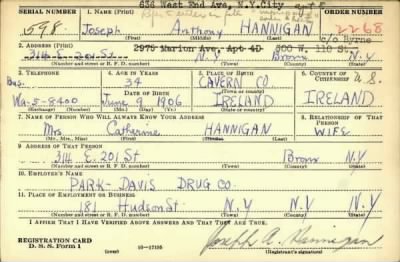 636 West End Ave, N.Y.City apt 8
SERIAL NUMBER 1. NAME (Print) ORDER NUMBER
598 Joseph Anthony HANNIGAN 2268
(First) (Middle) (Last)
c/o Byrne
2975 Marion Ave, Apt 4D 500 W. 110 St.
2. ADDRESS (Print)
314 E. 201 St N.Y Bronx N.Y
(Number and street or R. F. D. number) (Town) (County) (State)
3. TELEPHONE 4. AGE IN YEARS 5. PLACE OF BIRTH 6. COUNTRY OF CITIZENSHIP
Bus. 34 CAVERN CO U.S.
(Town or county)
DATE OF BIRTH
Wa-5-8400 June 9 1906 IRELAND IRELAND
(Exchange) (Number) (Mo.) (Day) (Yr.) (State or country)
7. NAME OF PERSON WHO WILL ALWAYS KNOW YOUR ADDRESS 8. RELATIONSHIP OF THAT PERSON
Mrs Catherine HANNIGAN WIFE
(Mr., Mrs., Miss) (First) (Middle) (Last)
9. ADDRESS OF THAT PERSON
314 E. 201 St Bronx N.Y
(Number and street or R. F. D. number) (Town) (County) (State)
10. EMPLOYER'S NAME
PARK-DAVIS DRUG CO.
11. PLACE OF EMPLOYMENT OR BUSINESS
181 Hudson St N.Y N.Y N.Y
(Number and street or R. F. D. number) (Town) (County) (State)
I AFFIRM THAT I HAVE VERIFIED ABOVE ANSWERS AND THAT THEY ARE TRUE.
REGISTRATION CARD
D. S. S. Form 1 16-17105 Joseph A. Hannigan
(Registrant's signature)